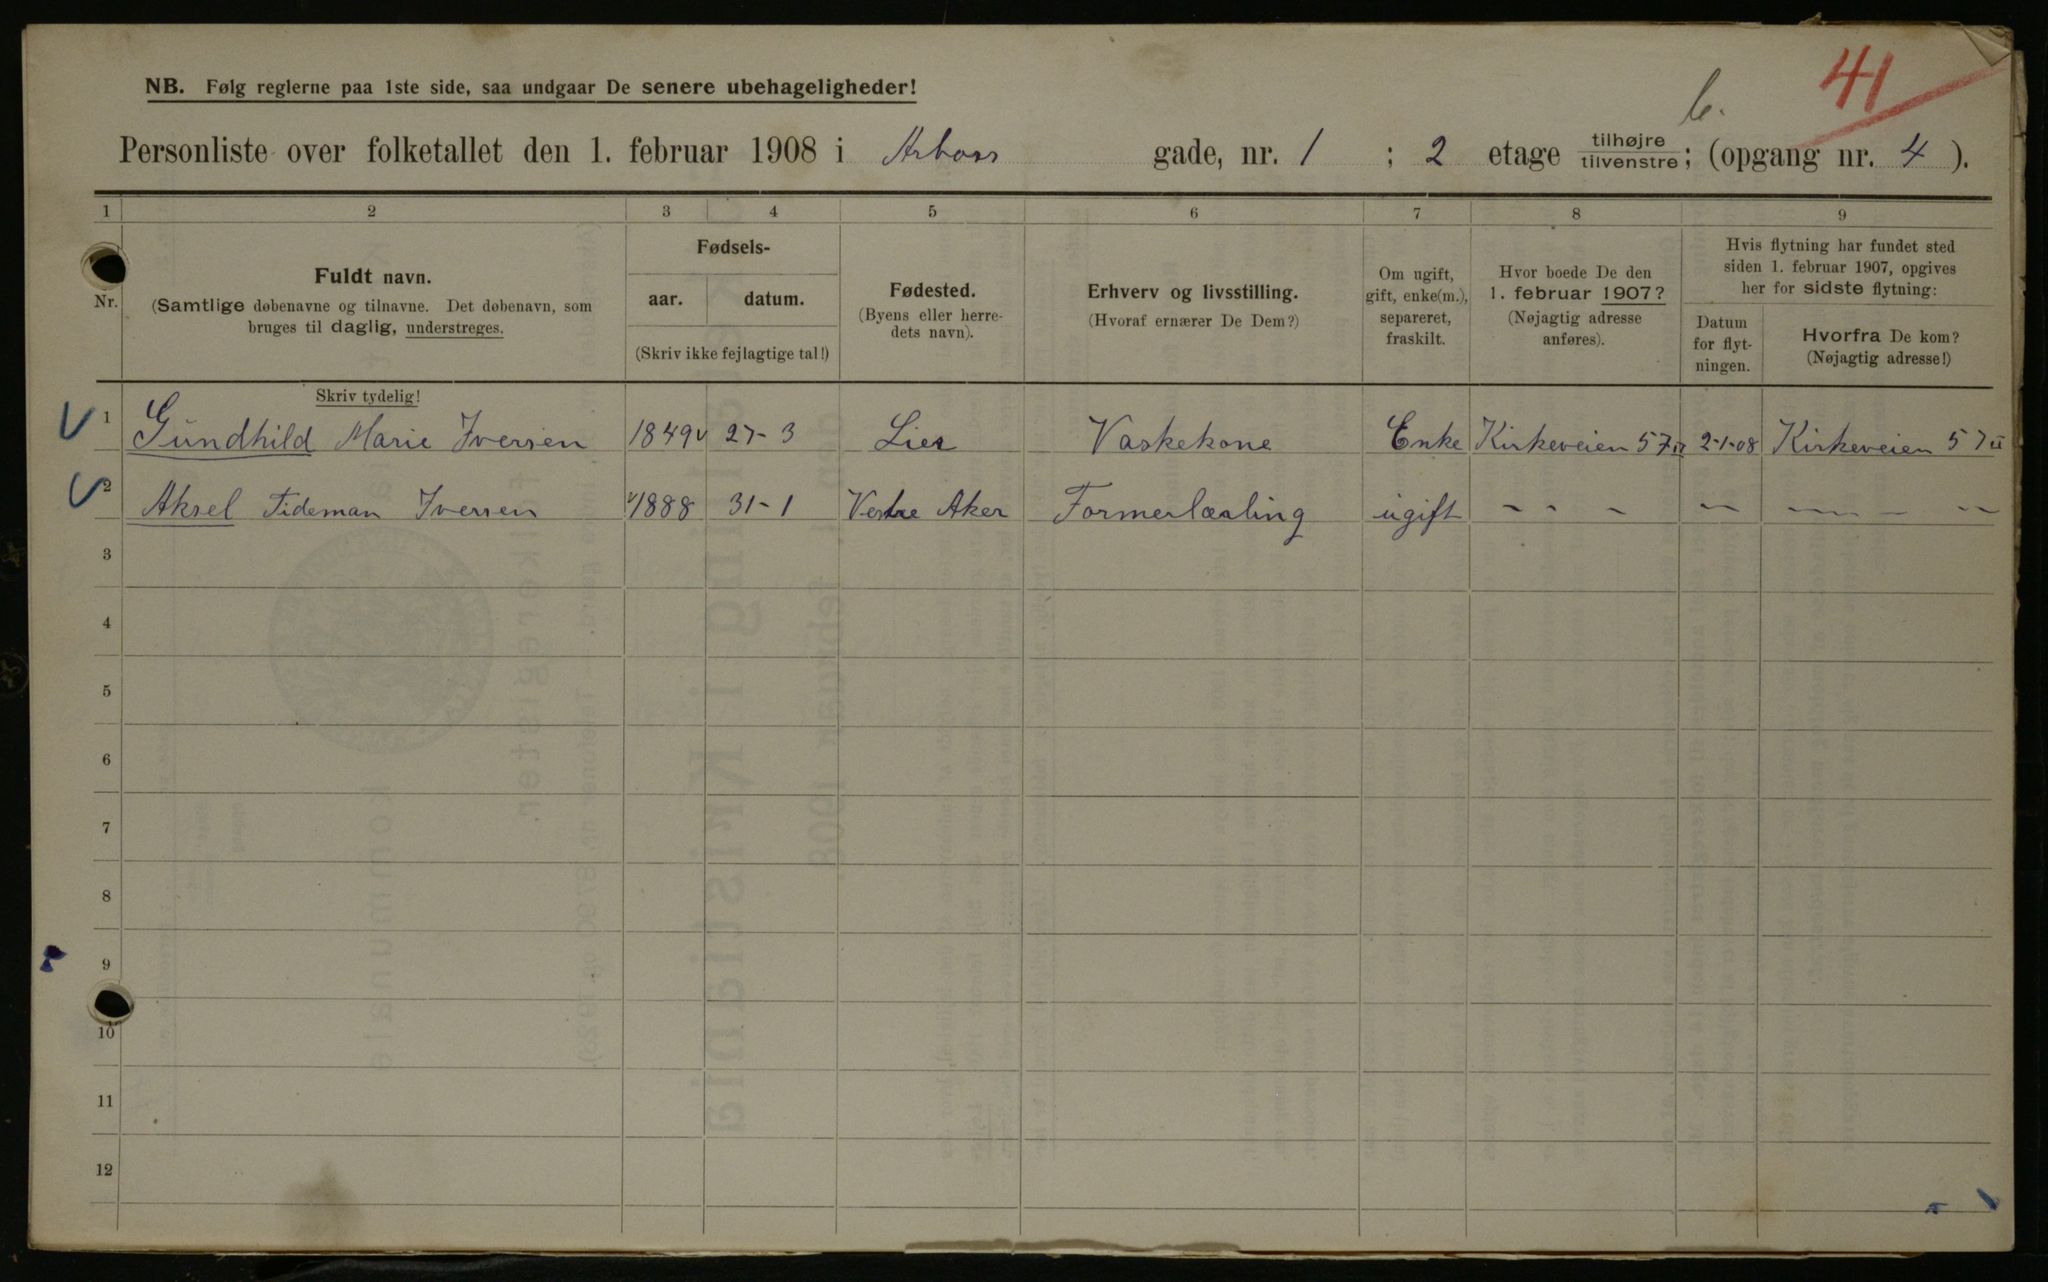 41
NB. Følg reglerne paa 1ste side, saa undgaar De senere ubehageligheder!
b.
Personliste over folketallet den 1. februar 1908 i Arbos gade, nr. 1 ; 2 etage tilhøjre tilvenstre; (opgang nr. 4 ).
1 2 3 4 5 6 7 8 9
Nr.
Fuldt navn.
(Samtlige døbenavne og tilnavne. Det døbenavn, som
bruges til daglig, understreges.
Skriv tydelig!
Fødsels-
aar. datum.
(Skriv ikke fejlagtige tal!)
Fødested.
(Byens eller herre-
dets navn).
Erhverv og livsstilling.
(Hvoraf ernærer De Dem?)
Om ugift,
gift, enke(m.),
separeret,
fraskilt.
Hvor boede De den
1. februar 1907?
(Nøjagtig adresse
anføres).
Hvis flytning har fundet sted
siden 1. februar 1907, opgives
her for sidste flytning:
Datum
for flyt-
ningen.
Hvorfra De kom?
(Nøjagtig adresse!)
1 Gundhild Marie Iversen 1849 27-3 Lier Vaskekone Enke Kirkeveien 57 II 2-1-08 Kirkeveien 57 II
2 Aksel Tideman Iversen 1888 31-1 Vestre Aker Formerlærling ugift - - - - - - - -
3
4
5
6
7
8
9
10
11
12